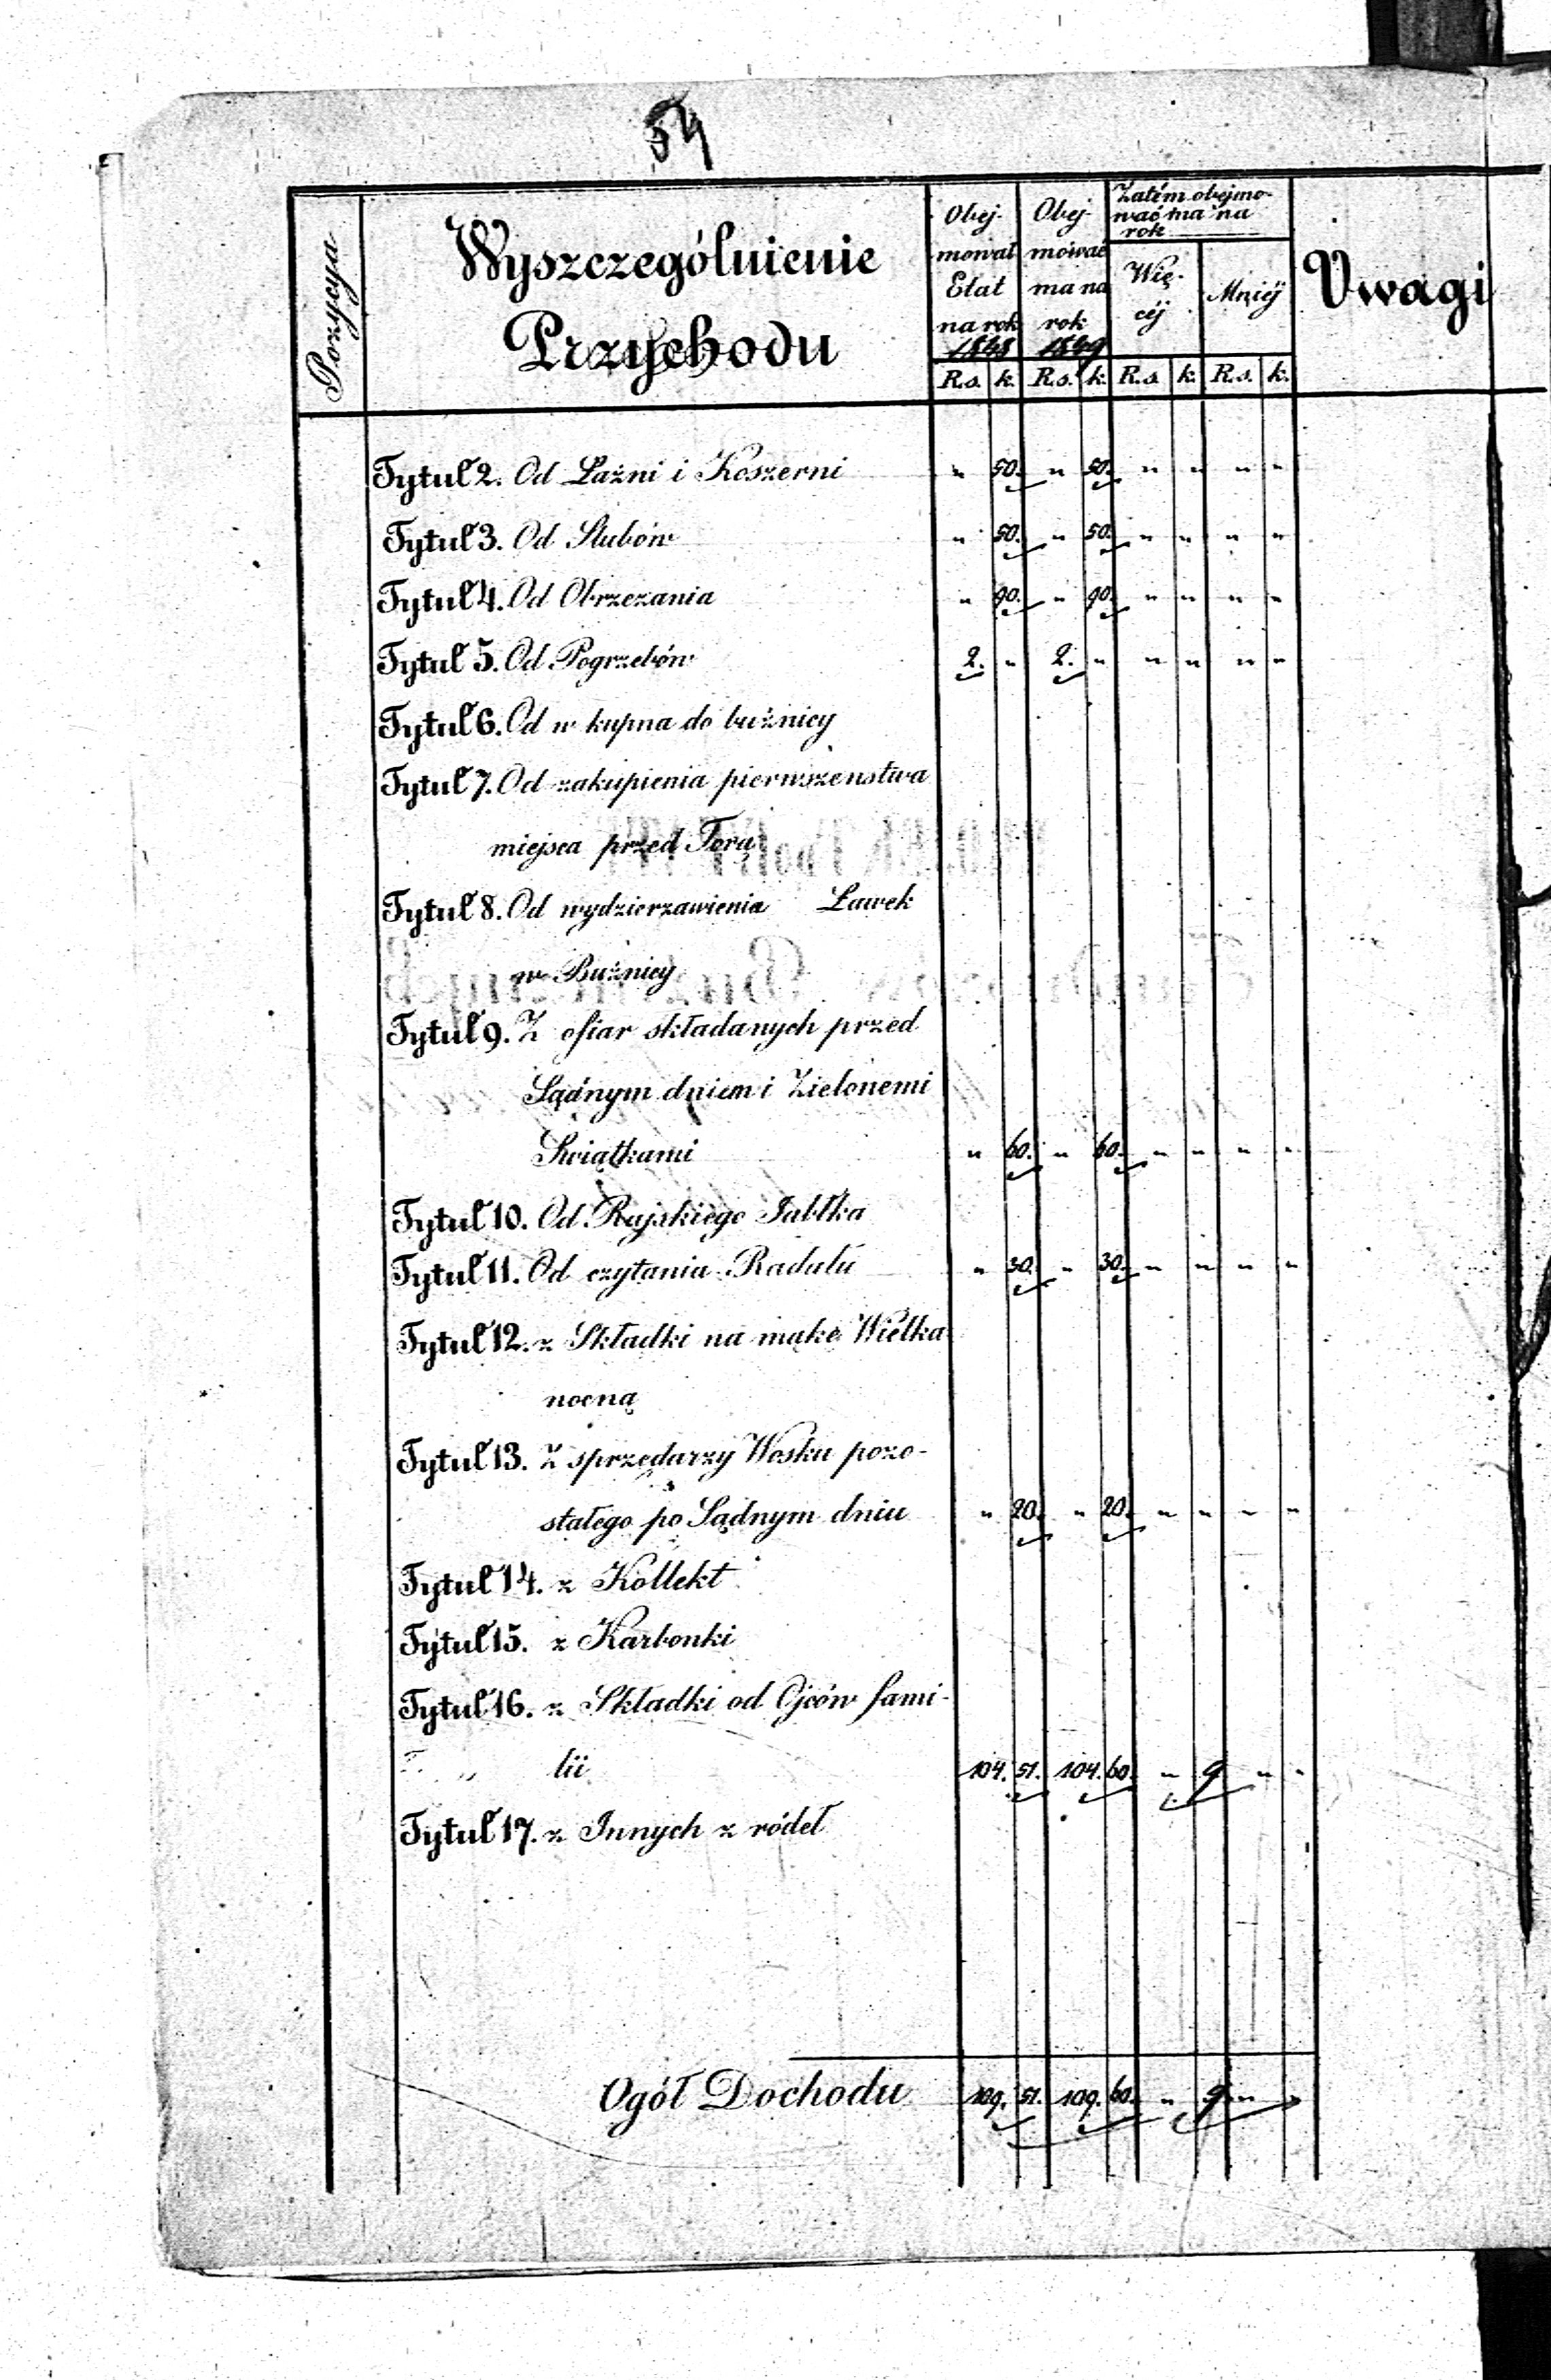 54
Pozycya
Wyszczególnienie
Przychodu
Obej-
mował
Etat
na rok
1848
Obej-
mować
ma na
rok
1849
Zatém obejmo-
wać ma na
rok
Wię-
céj
Mniéj
Uwagi
R.s. k. R.s. k. R.s. k. R.s. k.
Tytuł 2. Od Łaźni i Koszerni " 50. " 50. " " " "
Tytuł 3. Od Slubów " 50. " 50. " " " "
Tytuł 4. Od Obrzezania " 90. " 90. " " " "
Tytuł 5. Od Pogrzebów 2. " 2. " " " " "
Tytuł 6. Od w kupna do bużnicy
Tytuł 7. Od zakupienia pierwszenstwa
miejsca przed Torą
Tytuł 8. Od wydzierzawienia Ławek
w Bużnicy
Tytuł 9. Z ofiar składanych przed
Sądnym dniem i Zielonemi
Swiątkami " 60. " 60. " " " "
Tytuł 10. Od Rajskiego Jabłka
Tytuł 11. Od czytania Radułu " 30. " 30. " " " "
Tytuł 12. z Składki na mąkę Wielka
nocną
Tytuł 13. Z sprzedarzy Wosku pozo-
stałego po Sądnym dniu " 20. " 20. " " " "
Tytuł 14. z Kollekt
Tytuł 15. z Karbonki
Tytuł 16. z Składki od Ojców fami-
lii 104. 51. 104. 60. " 9 " "
Tytuł 17. z Innych z ródeł
Ogół Dochodu 109. 51. 109. 60. " 9 " "